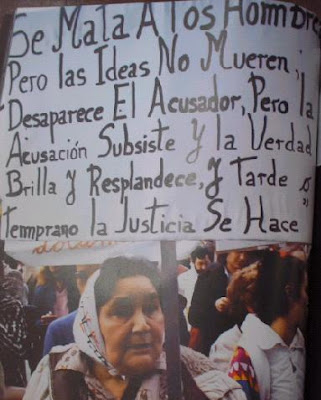 Se Mata A los Hombre
Pero las Ideas No Mueren;
Desaparece El Acusador, Pero la
Acusación Subsiste Y la Verdad
Brilla Y Resplandece, Y Tarde o
temprano la Justicia Se Hace"